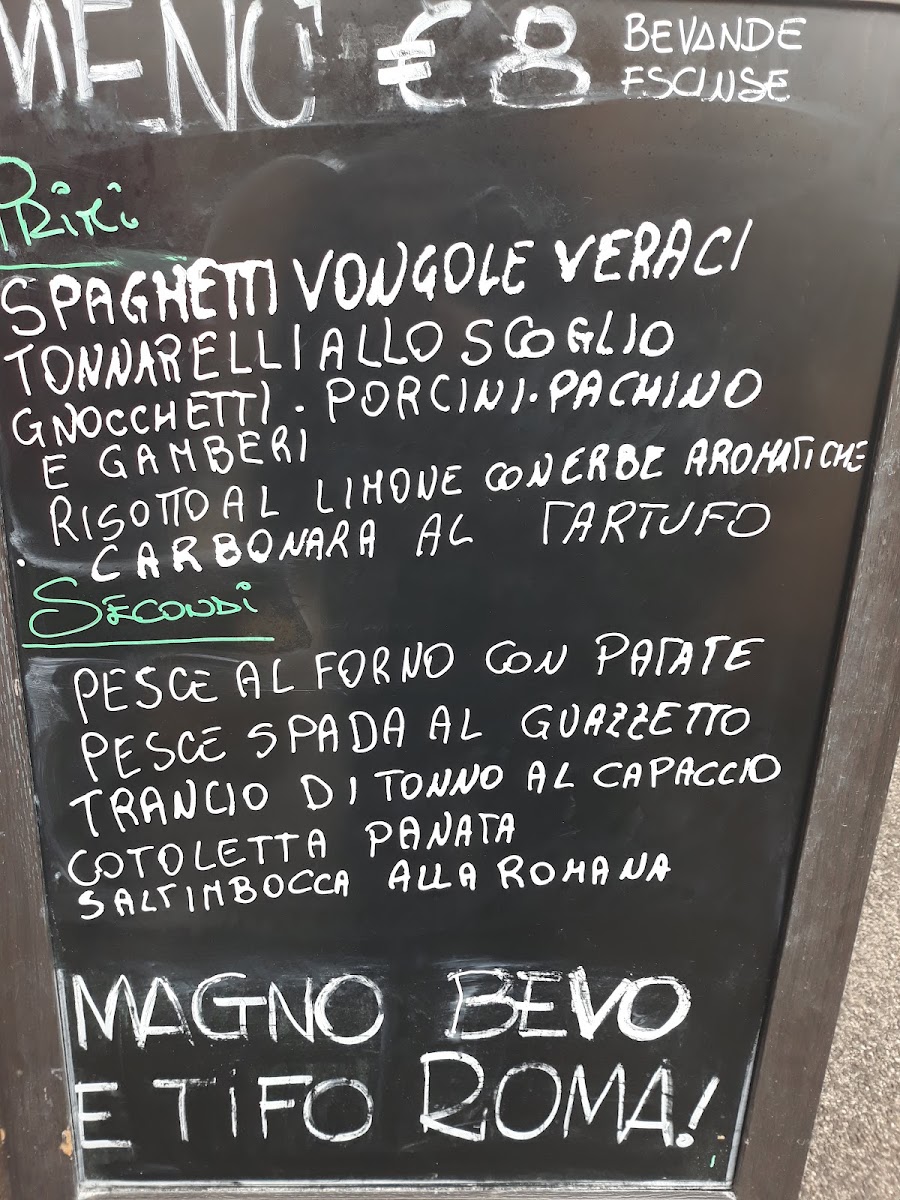 MENU' €8 BEVANDE
ESCLUSE
PRiMi
SPAGHETTI VONGOLE VERACI
TONNARELLI ALLO SCOGLIO
GNOCCHETTI. PORCINI. PACHINO
E GAMBERI
RISOTTO AL LIMONE CON ERBE AROMATICHE
. CARBONARA AL TARTUFO
SECONDi
PESCE AL FORNO CON PATATE
PESCE SPADA AL GUAZZETTO
TRANCIO DI TONNO AL CAPACCIO
COTOLETTA PANATA
SALTIMBOCCA ALLA ROMANA
MAGNO BEVO
E TiFO ROMA!